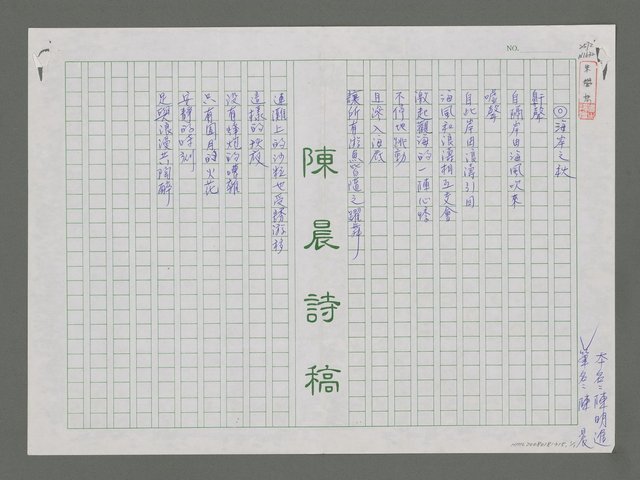 NO.
◎海岸之秋
鼾聲
自兩岸由海風吹來
噓聲
自此岸由浪濤引回
海風和浪濤相互交會
激起觀海的一陣心悸
不停地跳動
且深入海底
讓所有游魚皆隨之躍舞
連灘上的沙粒也受誘游移
這樣的秋夜
沒有烽炮的嘈雜
只有圓月的火花
安靜的時刻
足與浪漫共陶醉
陳晨詩稿
本名：陳明進
筆名：陳晨